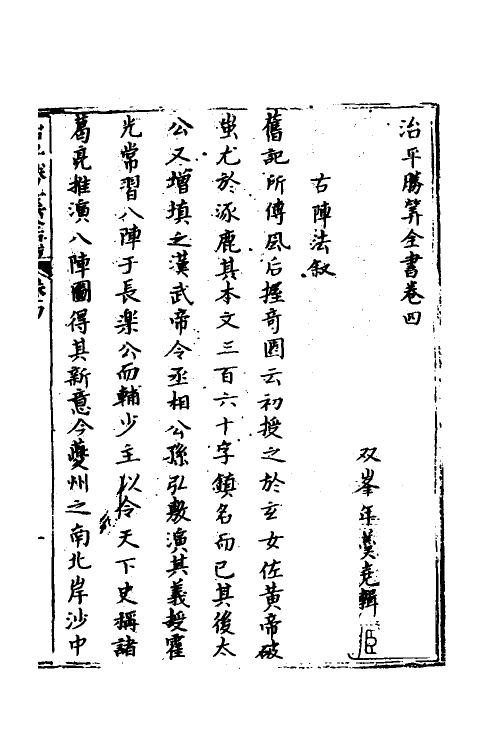 治平勝筭全書卷四
双峯年羹堯輯
古陣法叙
舊記所傳風后握奇圖云初授之於玄女佐黃帝破
蚩尤於涿鹿其本文三百六十字鎮名而已其後太
公又增填之漢武帝令丞相公孫弘敷演其義授霍
光常習八陣于長楽公而輔少主以令天下史稱諸
葛亮推演八陣圖得其新意今夔州之南北岸沙中